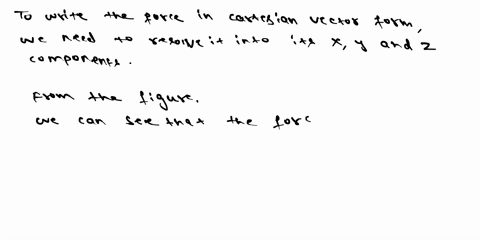 To write the force in cartesian vector form,
we need to resolve it into its x, y and z
components.
from the figure.
we can see that the forc